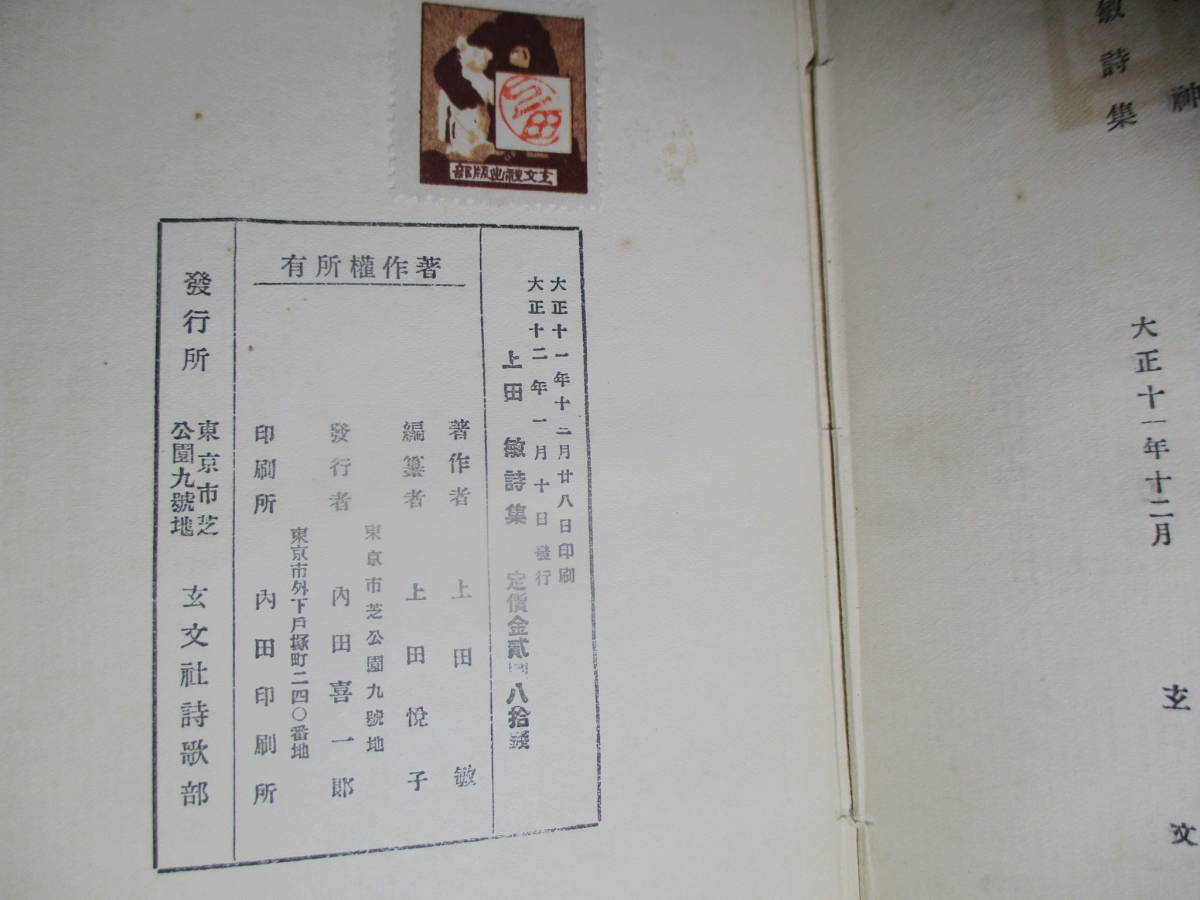 敏詩集
神
大正十一年十二月
玄文
上田
玄文社出版部
著作權所有
大正十一年十二月廿八日印刷
大正十二年一月十日發行
上田敏詩集 定價金貳圓八拾錢
著作者 上田敏
編纂者 上田悅子
東京市芝公園九號地
發行者 內田喜一郞
東京市外下戶塚町二四〇番地
印刷所 內田印刷所
發行所 東京市芝公園九號地 玄文社詩歌部